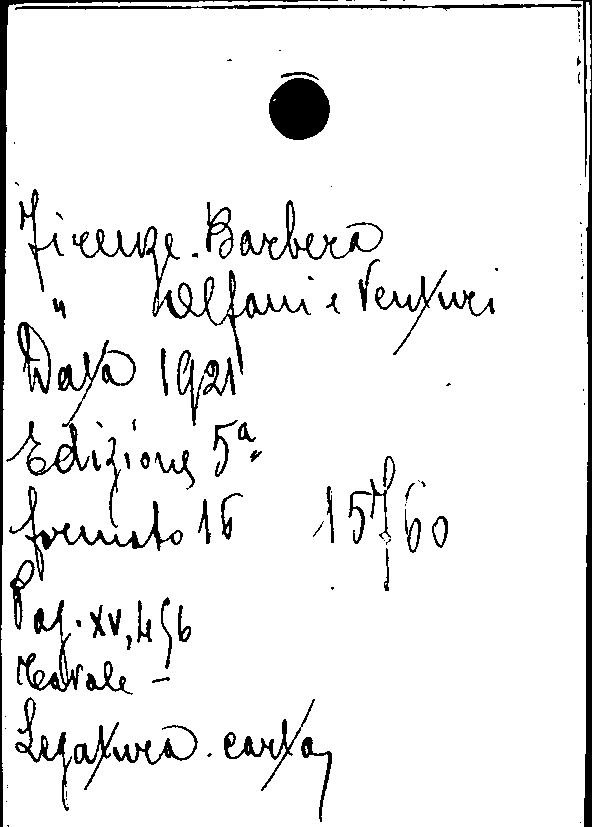 Firenze. Barbera
" Alfani e Venturi
Data 1921
Edizione 5ª
formato 16 15760
Pag. XV, 456
Tavole –
Legatura. carta